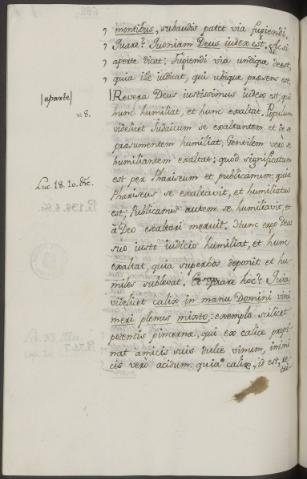 montibus, subaudis patet via fugiendi,
Quare? Quoniam Deus iudex est, ac si
aperte dicat: fugiendi via undique deest,
quia ille iudicat, qui ubique praesens est.
|aparte| Revera Deus iustissimus iudex est, qui
n 8. hunc humiliat, et hunc exaltat. Populum
videlicet Judaicum se exaltantem et de se
praesumentem humiliat, Gentilem vero se
humiliantem exaltat; quod significatum
Luc. 18. 10. &c. est per Phariseum et publicanum; quia
Phariseus se exaltavit, et humiliatus
est; Publicanus autem se humiliavit, et
à Deo exaltari meruit. Nunc ergo Deus
suo iusto iudicio humiliat, et hunc
exaltat, quia superbos deponit et hu-
miles sublevat. Et quare hoc? Quia
videlicet calix in manu Domini vini
meri plenus mixto: exempla scilicet
potentis pincernae, qui ex calice propi-
nat amicis suis dulce vinum, inimi-
cis vero acidum. quia calix, id est,